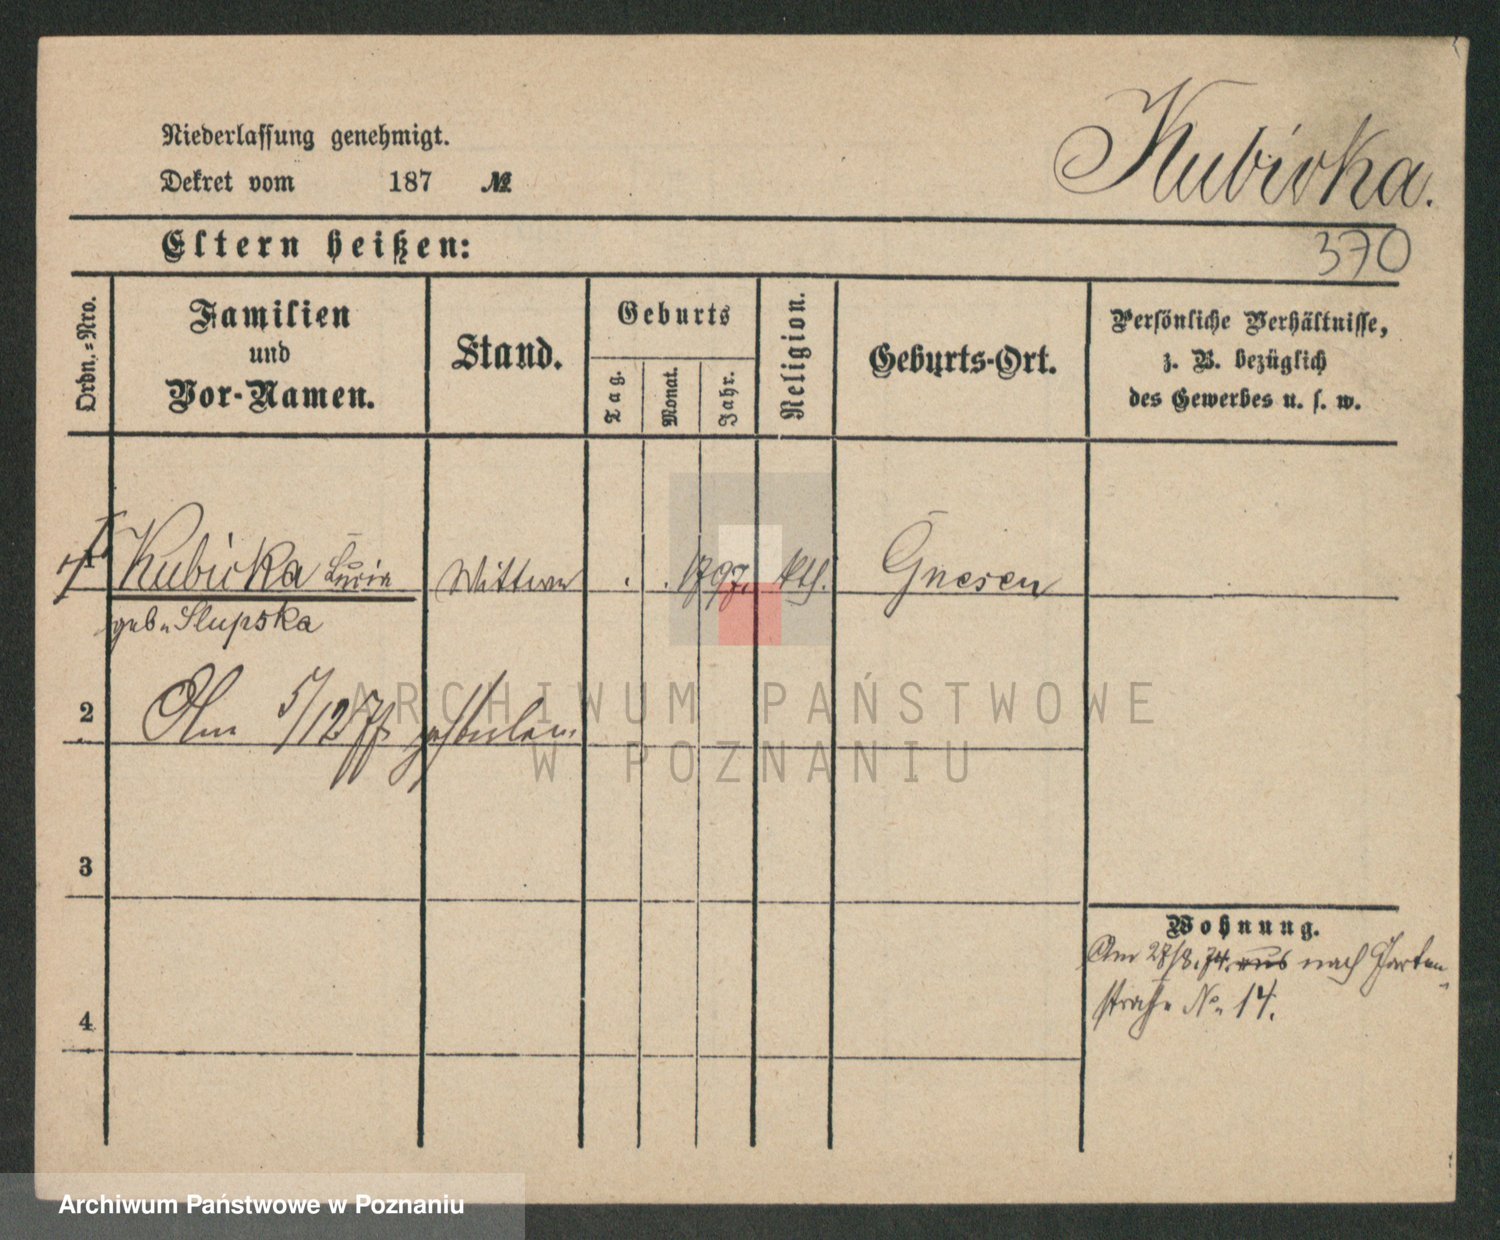 Niederlassung genehmigt.
Dekret vom 187 №
Kubicka.
Eltern heißen:
370
Ordn.-Nro.
Familien
und
Vor-Namen.
Stand.
Geburts
Tag.
Monat.
Jahr.
Religion.
Geburts-Ort.
Persönliche Verhältnisse,
z. B. bezüglich
des Gewerbes u. s. w.
1 Kubicka Lucia Wittwe . . 1797. kth. Gnesen
geb. Slupska
2 Am 5/12 77 gestorben.
3
4
Wohnung.
Am 28/8. 74. aus nach Garten-
straße No. 14.
ARCHIWUM PAŃSTWOWE
W POZNANIU
Archiwum Państwowe w Poznaniu